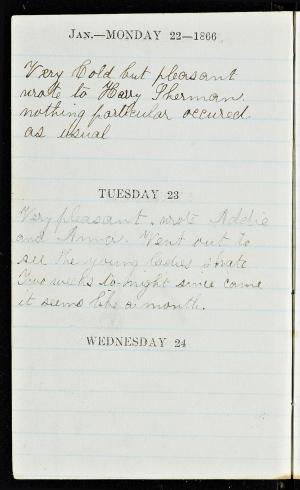 Jan.—MONDAY 22—1866.
Very Cold but pleasant
wrote to Harry Sherman.
nothing particular occured
as usual
TUESDAY 23
Very pleasant. wrote Addie
and Anna. Went out to
see the young ladies skate
Two weeks to-night since came
it seems like a month.
WEDNESDAY 24